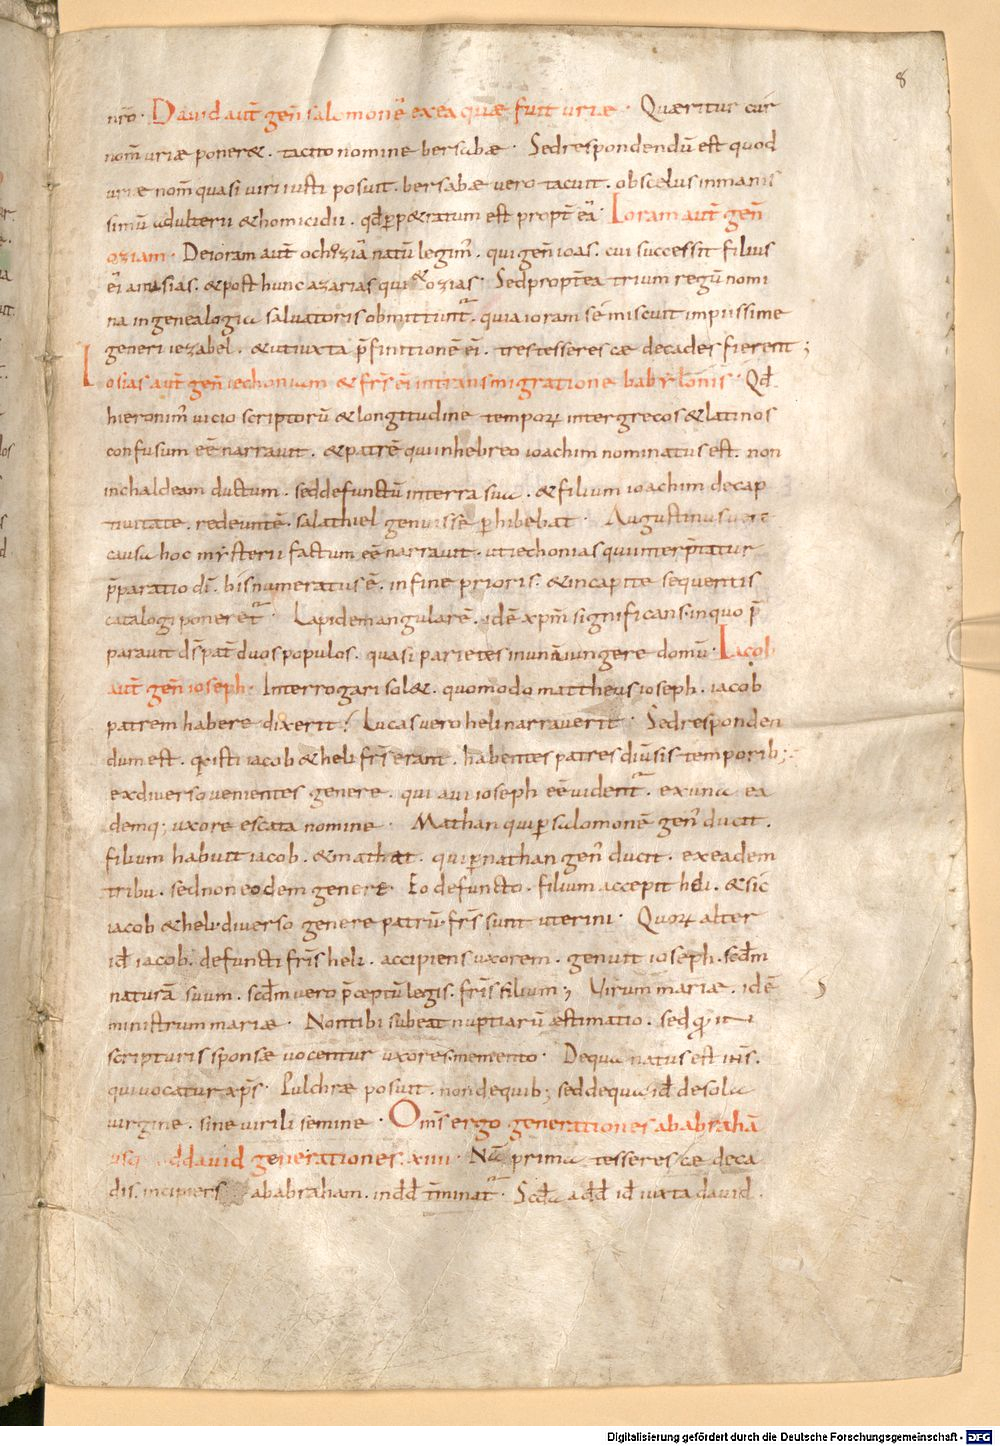 8
nr̄o · Dauid aut̄ gen̄ salomonē exea quæ fuit uriæ · Quæritur cur
nom̄ uriæ poner& . tacito nomine bersabæ · Sed respondendū est quod
uriæ nom̄ quasi uiri iusti posuit . bersabæ uero tacuit . ob scelus inmanis
simū adulterii & homicidii . qd̄ ꝑp&ratum est propt̄ eā · Ioram aut̄ gen̄
oziam · De ioram aut̄ ochoziā natū legim̄ . qui gen̄ ioas . cui successit filius
ēi amasias . & post hunc azarias qui & ozias · Sed propt̄ea trium regū nomi
na in genealogia saluatoris obmittunt̄ . quia ioram sē miscuit impiissime
generi iezabel . & ut iuxta p̄finitionē ēi . tres tesseres cæ decades fierent ;
Iosias aut̄ gen̄ iechoniam & fr̄s ēi in transmigratione babylonis · Qd̄
hieronim̄ uicio scriptorū & longitudine temporꝝ inter grecos & latinos
confusum eē narrauit . & patrē qui in hebreo ioachim nominatus est . non
in chaldeam ductum . sed defunctū in terra sua . & filium ioachim de cap
tiuitate . redeuntē . salathiel genuisse ꝑhibebat · Augustinus uero
causa hoc mysterii factum eē narrauit . ut iechonias qui interp̄tatur
p̄paratio dī . bis numeratus ē . in fine prioris . & in capite sequentis
catalogi poneret̄ · Lapidem angularē . idē xp̄m significans in quo p̄
parauit d̄s pat̄ duos populos . quasi parietes in unā iungere domū · Iacob
aut̄ gen̄ ioseph · Interrogari sol& . quomodo mattheus ioseph . iacob
patrem habere dixerit ? Lucas uero heli narrauerit · Sed responden
dum est . qđ isti iacob & heli fr̄s erant . habentes patres diūsis temporib;
ex diuerso uenientes genere . qui aui ioseph eē uident̄ . ex una ea
demq; uxore escata nomine · Mathan qui ꝑ salomonē gen̄ ducit .
filium habuit iacob . & mathat . qui ꝑ nathan gen̄ ducit . ex eadem
tribu . sed non eodem genere · Eo defuncto . filium accepit heli . & sic
iacob & heli . diuerso genere patrū . fr̄s sunt uterini · Quorꝝ alter
id̄ iacob . defuncti fr̄is heli . accipiens uxorem . genuit ioseph . scd̄m
naturā suum . scd̄m uero p̄ceptū legis . fr̄is filium ; Uirum mariæ . idē
ministrum mariæ · Non tibi subeat nuptiarū æstimatio . sed
scripturis sponsæ uocentur uxores memento · De qua natus est ih̄s .
qui uocatur xp̄s · Pulchræ posuit . non de quib; sed de qua id̄ de sola
uirgine . sine uirili semine · Om̄s ergo generationes ab abrahā
usq; ad dauid generationes . xiiii · Nā prima tesseres cæ deca
dis . incipiens ab abraham . in dd̄ t̄minat̄ · Scd̄a a dd̄ id̄ iuxta dauid .
Digitalisierung gefördert durch die Deutsche Forschungsgemeinschaft - DFG